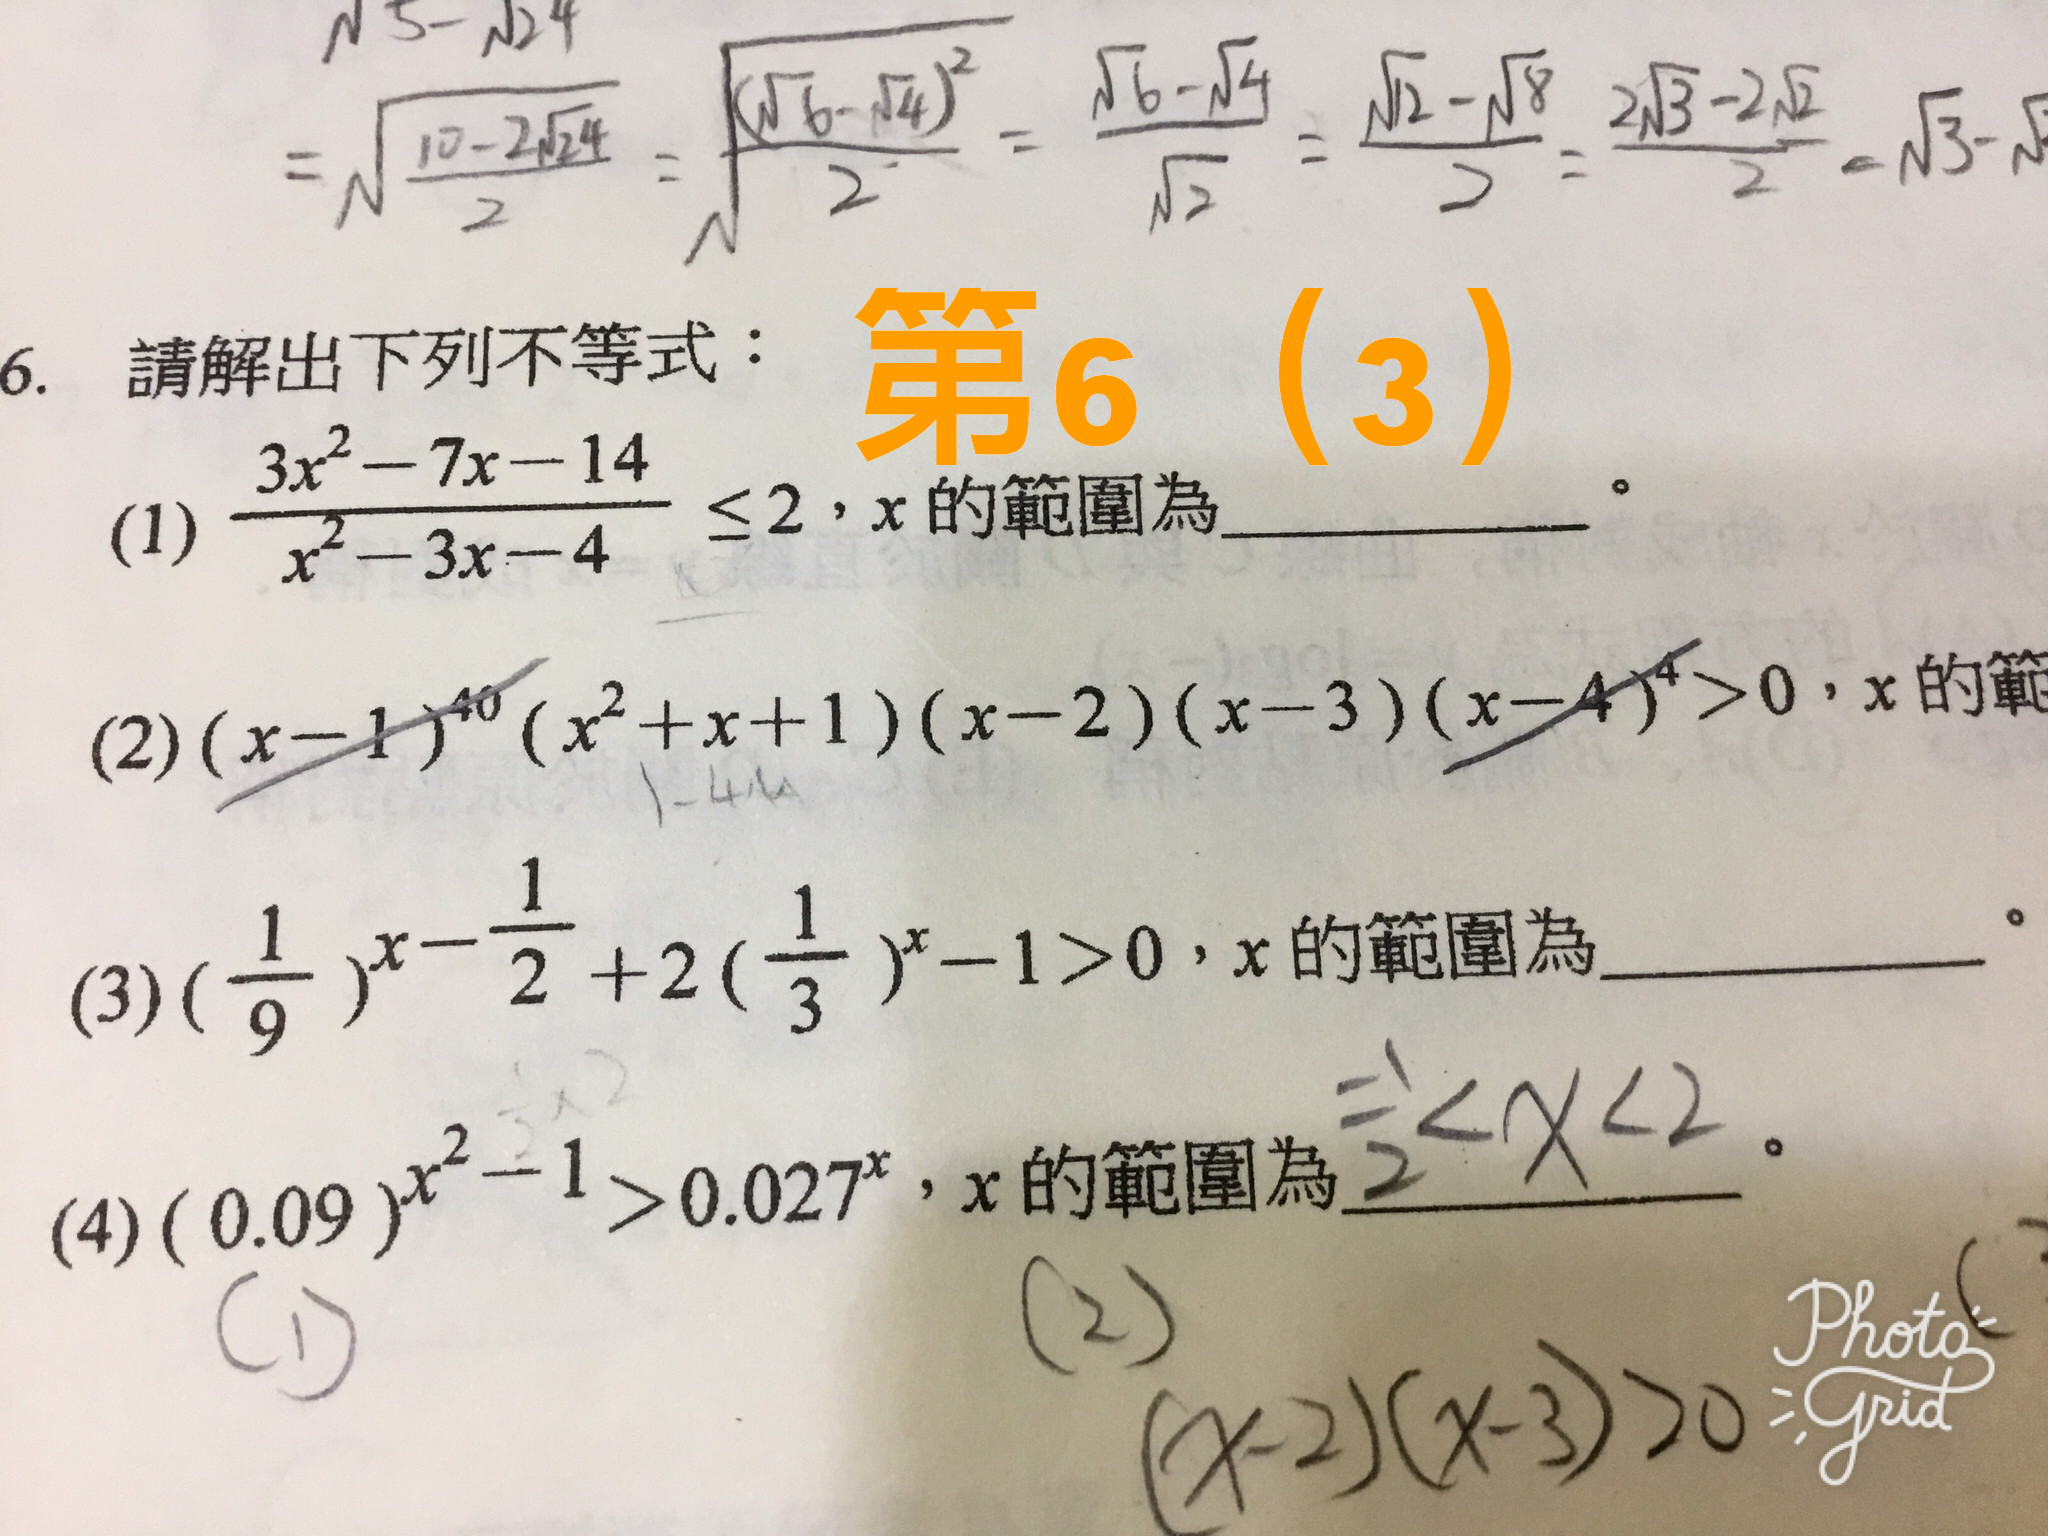 √5-√24
=√(10-2√24)/2 = √(√6-√4)²/2 = (√6-√4)/√2 = (√12-√8)/2 = (2√3-2√2)/2 = √3-√2
第6（3）
6. 請解出下列不等式：
(1) (3x²-7x-14)/(x²-3x-4) ≤2，x 的範圍為__________。
(2) (x-1)⁴⁰(x²+x+1)(x-2)(x-3)(x-4)⁴>0，x 的範
1-4
(3) (1/9)^(x-1/2)+2(1/3)^x-1>0，x 的範圍為__________。
(4) (0.09)^(x²-1)>0.027^x，x 的範圍為 -1/2<x<2 。
(1) (2)
(x-2)(x-3)>0
Photo Grid